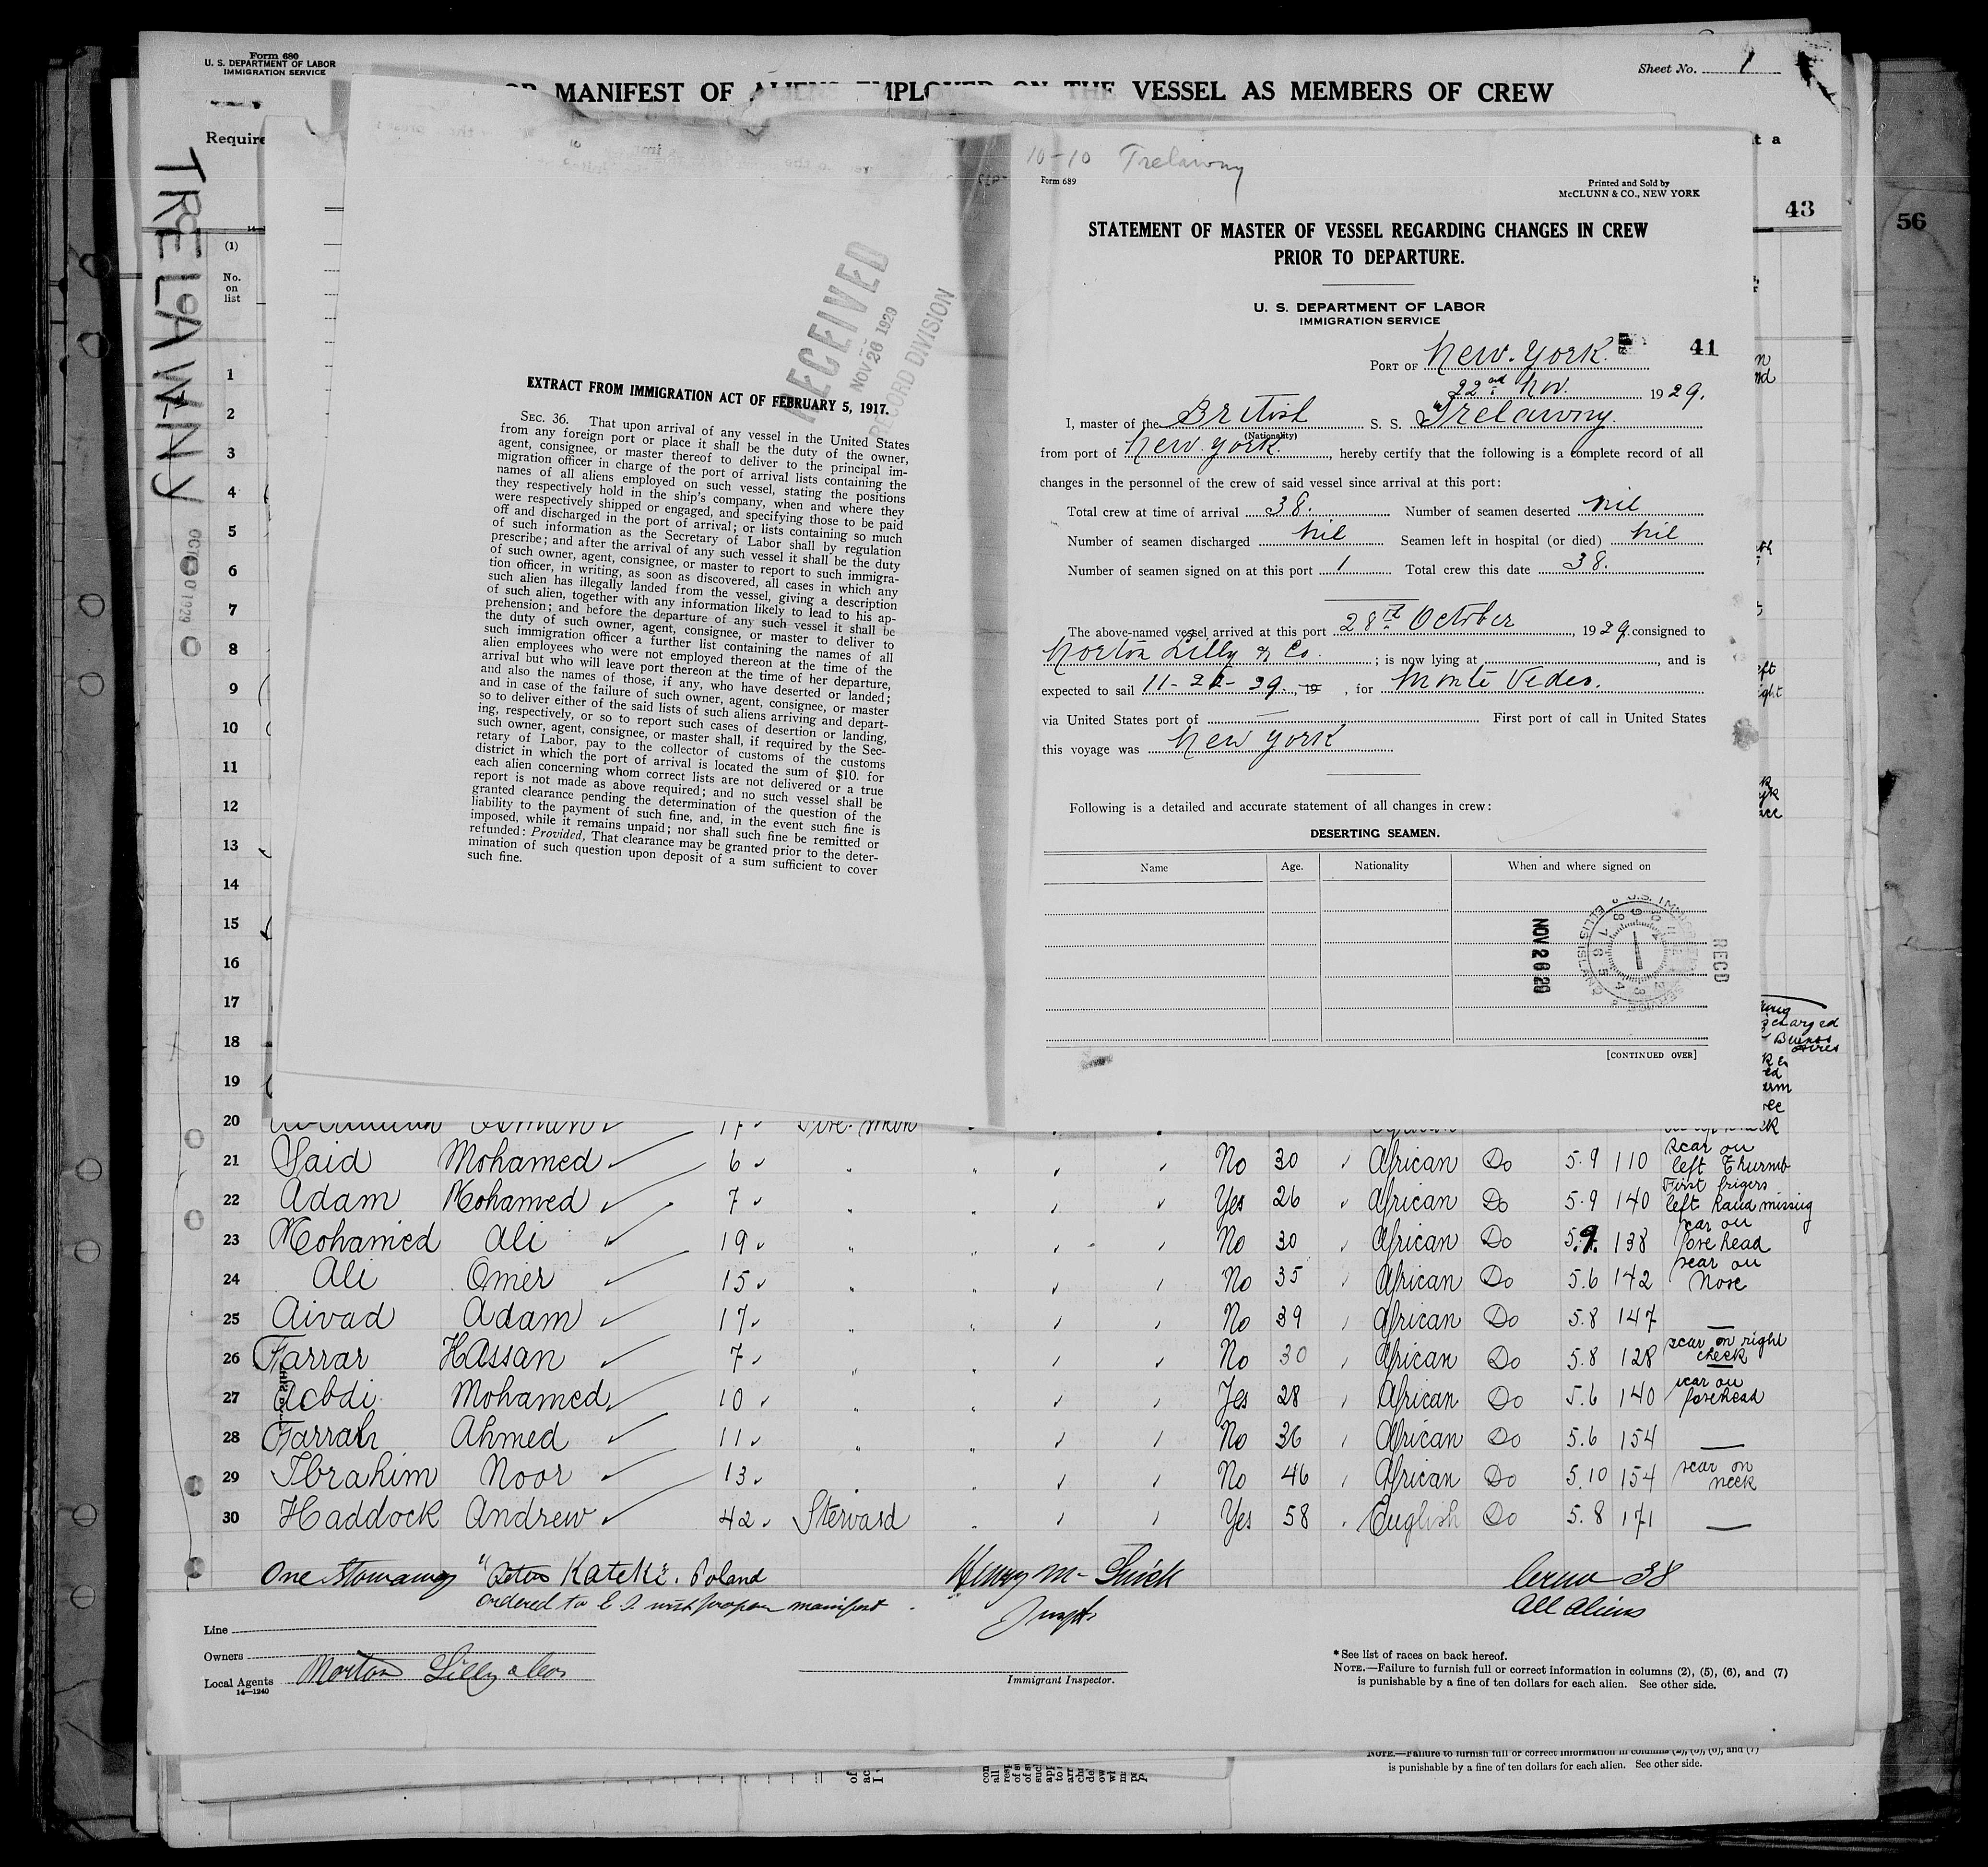 Form 680
U. S. DEPARTMENT OF LABOR
IMMIGRATION SERVICE
Sheet No. 1
OR MANIFEST OF ALIENS EMPLOYED ON THE VESSEL AS MEMBERS OF CREW
Require
t a
43
56
TRELAWNY
OCT 10 1929
(1)
No.
on
list
1
2
3
4
5
6
7
8
9
10
11
12
13
14
15
16
17
18
19
RECEIVED
NOV 26 1929
RECORD DIVISION
EXTRACT FROM IMMIGRATION ACT OF FEBRUARY 5, 1917.
SEC. 36. That upon arrival of any vessel in the United States
from any foreign port or place it shall be the duty of the owner,
agent, consignee, or master thereof to deliver to the principal im-
migration officer in charge of the port of arrival lists containing the
names of all aliens employed on such vessel, stating the positions
they respectively hold in the ship's company, when and where they
were respectively shipped or engaged, and specifying those to be paid
off and discharged in the port of arrival; or lists containing so much
of such information as the Secretary of Labor shall by regulation
prescribe; and after the arrival of any such vessel it shall be the duty
of such owner, agent, consignee, or master to report to such immigra-
tion officer, in writing, as soon as discovered, all cases in which any
such alien has illegally landed from the vessel, giving a description
of such alien, together with any information likely to lead to his ap-
prehension; and before the departure of any such vessel it shall be
the duty of such owner, agent, consignee, or master to deliver to
such immigration officer a further list containing the names of all
alien employees who were not employed thereon at the time of the
arrival but who will leave port thereon at the time of her departure,
and also the names of those, if any, who have deserted or landed;
and in case of the failure of such owner, agent, consignee, or master
so to deliver either of the said lists of such aliens arriving and depart-
ing, respectively, or so to report such cases of desertion or landing,
such owner, agent, consignee, or master shall, if required by the Sec-
retary of Labor, pay to the collector of customs of the customs
district in which the port of arrival is located the sum of $10. for
each alien concerning whom correct lists are not delivered or a true
report is not made as above required; and no such vessel shall be
granted clearance pending the determination of the question of the
liability to the payment of such fine, and, in the event such fine is
imposed, while it remains unpaid; nor shall such fine be remitted or
refunded: Provided, That clearance may be granted prior to the deter-
mination of such question upon deposit of a sum sufficient to cover
such fine.
10-10 Trelawny
Form 689
Printed and Sold by
McCLUNN & CO., NEW YORK
STATEMENT OF MASTER OF VESSEL REGARDING CHANGES IN CREW
PRIOR TO DEPARTURE.
U. S. DEPARTMENT OF LABOR
IMMIGRATION SERVICE
41
PORT OF New. York.
22nd Nov. 1929.
I, master of the British S. S. Trelawny.
(Nationality)
from port of New. York., hereby certify that the following is a complete record of all
changes in the personnel of the crew of said vessel since arrival at this port:
Total crew at time of arrival 38. Number of seamen deserted nil
Number of seamen discharged Nil Seamen left in hospital (or died) Nil
Number of seamen signed on at this port 1 Total crew this date 38.
The above-named vessel arrived at this port 28th October, 1929. consigned to
Norton Lilly & Co. ; is now lying at , and is
expected to sail 11-22-29., 19 , for Monte Video.
via United States port of — First port of call in United States
this voyage was New York
Following is a detailed and accurate statement of all changes in crew:
DESERTING SEAMEN.
Name Age. Nationality When and where signed on
NOV 26 29
U.S. IMMIGRATION SERVICE ELLIS ISLAND
RECD
[CONTINUED OVER]
charged
Buenos
Aires
20 Osman 17 Fire-man
21 Said Mohamed 6 " " No 30 African Do 5.9 110 scar on left thurmb
22 Adam Mohamed 7 " Yes 26 African Do 5.9 140 First frigers left hand missing
23 Mohamed Ali 19 " " No 30 African Do 5.9. 138 scar on fore head
24 Ali Omer 15 " " No 35 African Do 5.6 142 scar on Nose
25 Aivad Adam 17 " " No 39 African Do 5.8 147 —
26 Farrar Hassan 7 " " No 30 African Do 5.8 128 scar on right cheek
27 Acbdi Mohamed 10 " " Yes 28 African Do 5.6 140 scar on forehead
28 Farrah Ahmed 11 " " No 36 African Do 5.6 154 —
29 Ibrahim Noor 13 " No 46 African Do 5.10 154 scar on neck
30 Haddock Andrew 42 Stervard " Yes 58 English Do 5.8 171 —
One Stowaway "Peter Kateki. Poland
Ordered to E. I. with proper manifest.
Crew 38
All aliens
Line
Owners
Local Agents Norton Lilly & Co
14—1240
Immigrant Inspector.
* See list of races on back hereof.
NOTE.—Failure to furnish full or correct information in columns (2), (5), (6), and (7)
is punishable by a fine of ten dollars for each alien. See other side.
NOTE.—Failure to furnish full or correct information in columns (2), (5), (6), and (7)
is punishable by a fine of ten dollars for each alien. See other side.